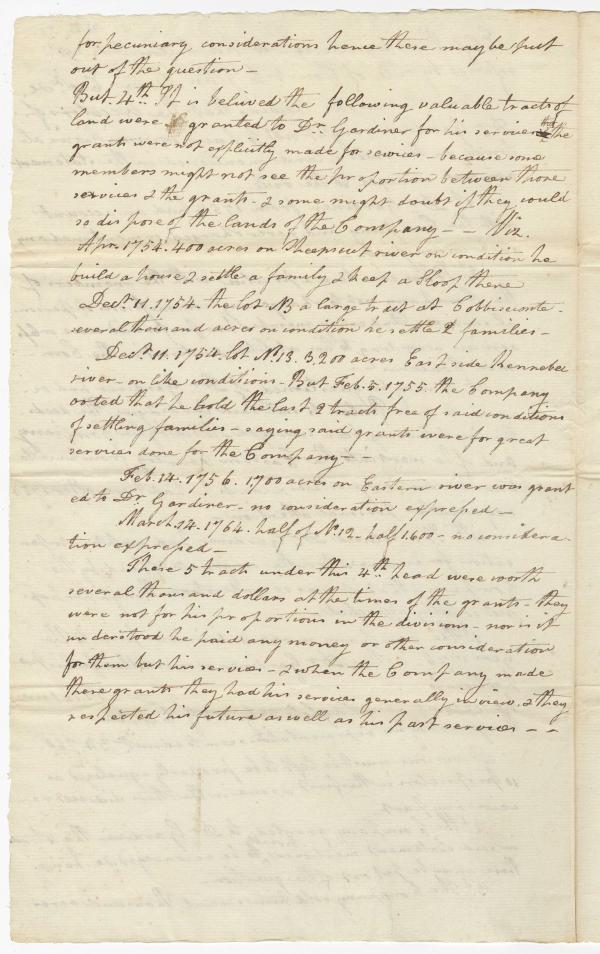 for pecuniary considerations hence these may be put
out of the question –
But 4th. It is belived the following valuable tracts of
land were granted to Dr. Gardiner for his services tho the
grants were not explicitly made for services – because some
members might not see the proportion between those
services & the grants – & some might doubt if they could
so dispose of the lands of the Company – – Viz.
Apr. 1754. 400 acres on Sheepscut river on condition he
build a house & settle a family & keep a Sloop there
Decr. 11. 1754. the lot N3 a large tract at Cobbiseconte –
several thousand acres on condition he settle 2 families –
Decr. 11. 1754. lot No. 13. 3,200 acres East side Kennebec
river – on like conditions – But Feb. 5. 1755 the Company
voted that he hold the last 2 tracts free of said conditions
of settling families – saying said grants were for great
services done for the Company – –
Feb. 14. 1756. 1700 acres on Eastern river was grant
ed to Dr. Gardiner – no consideration expressed –
March 14. 1764. half of No. 12 – half 1.600 – no considera-
tion expressed –
These 5 tracts under this 4th. head were worth
several thousand dollars at the times of the grants – they
were not for his proportions in the divisions – nor is it
understood he paid any money or other consideration
for them but his services – & when the Company made
these grants they had his services generally in view, & they
respected his future as well as his past services – –